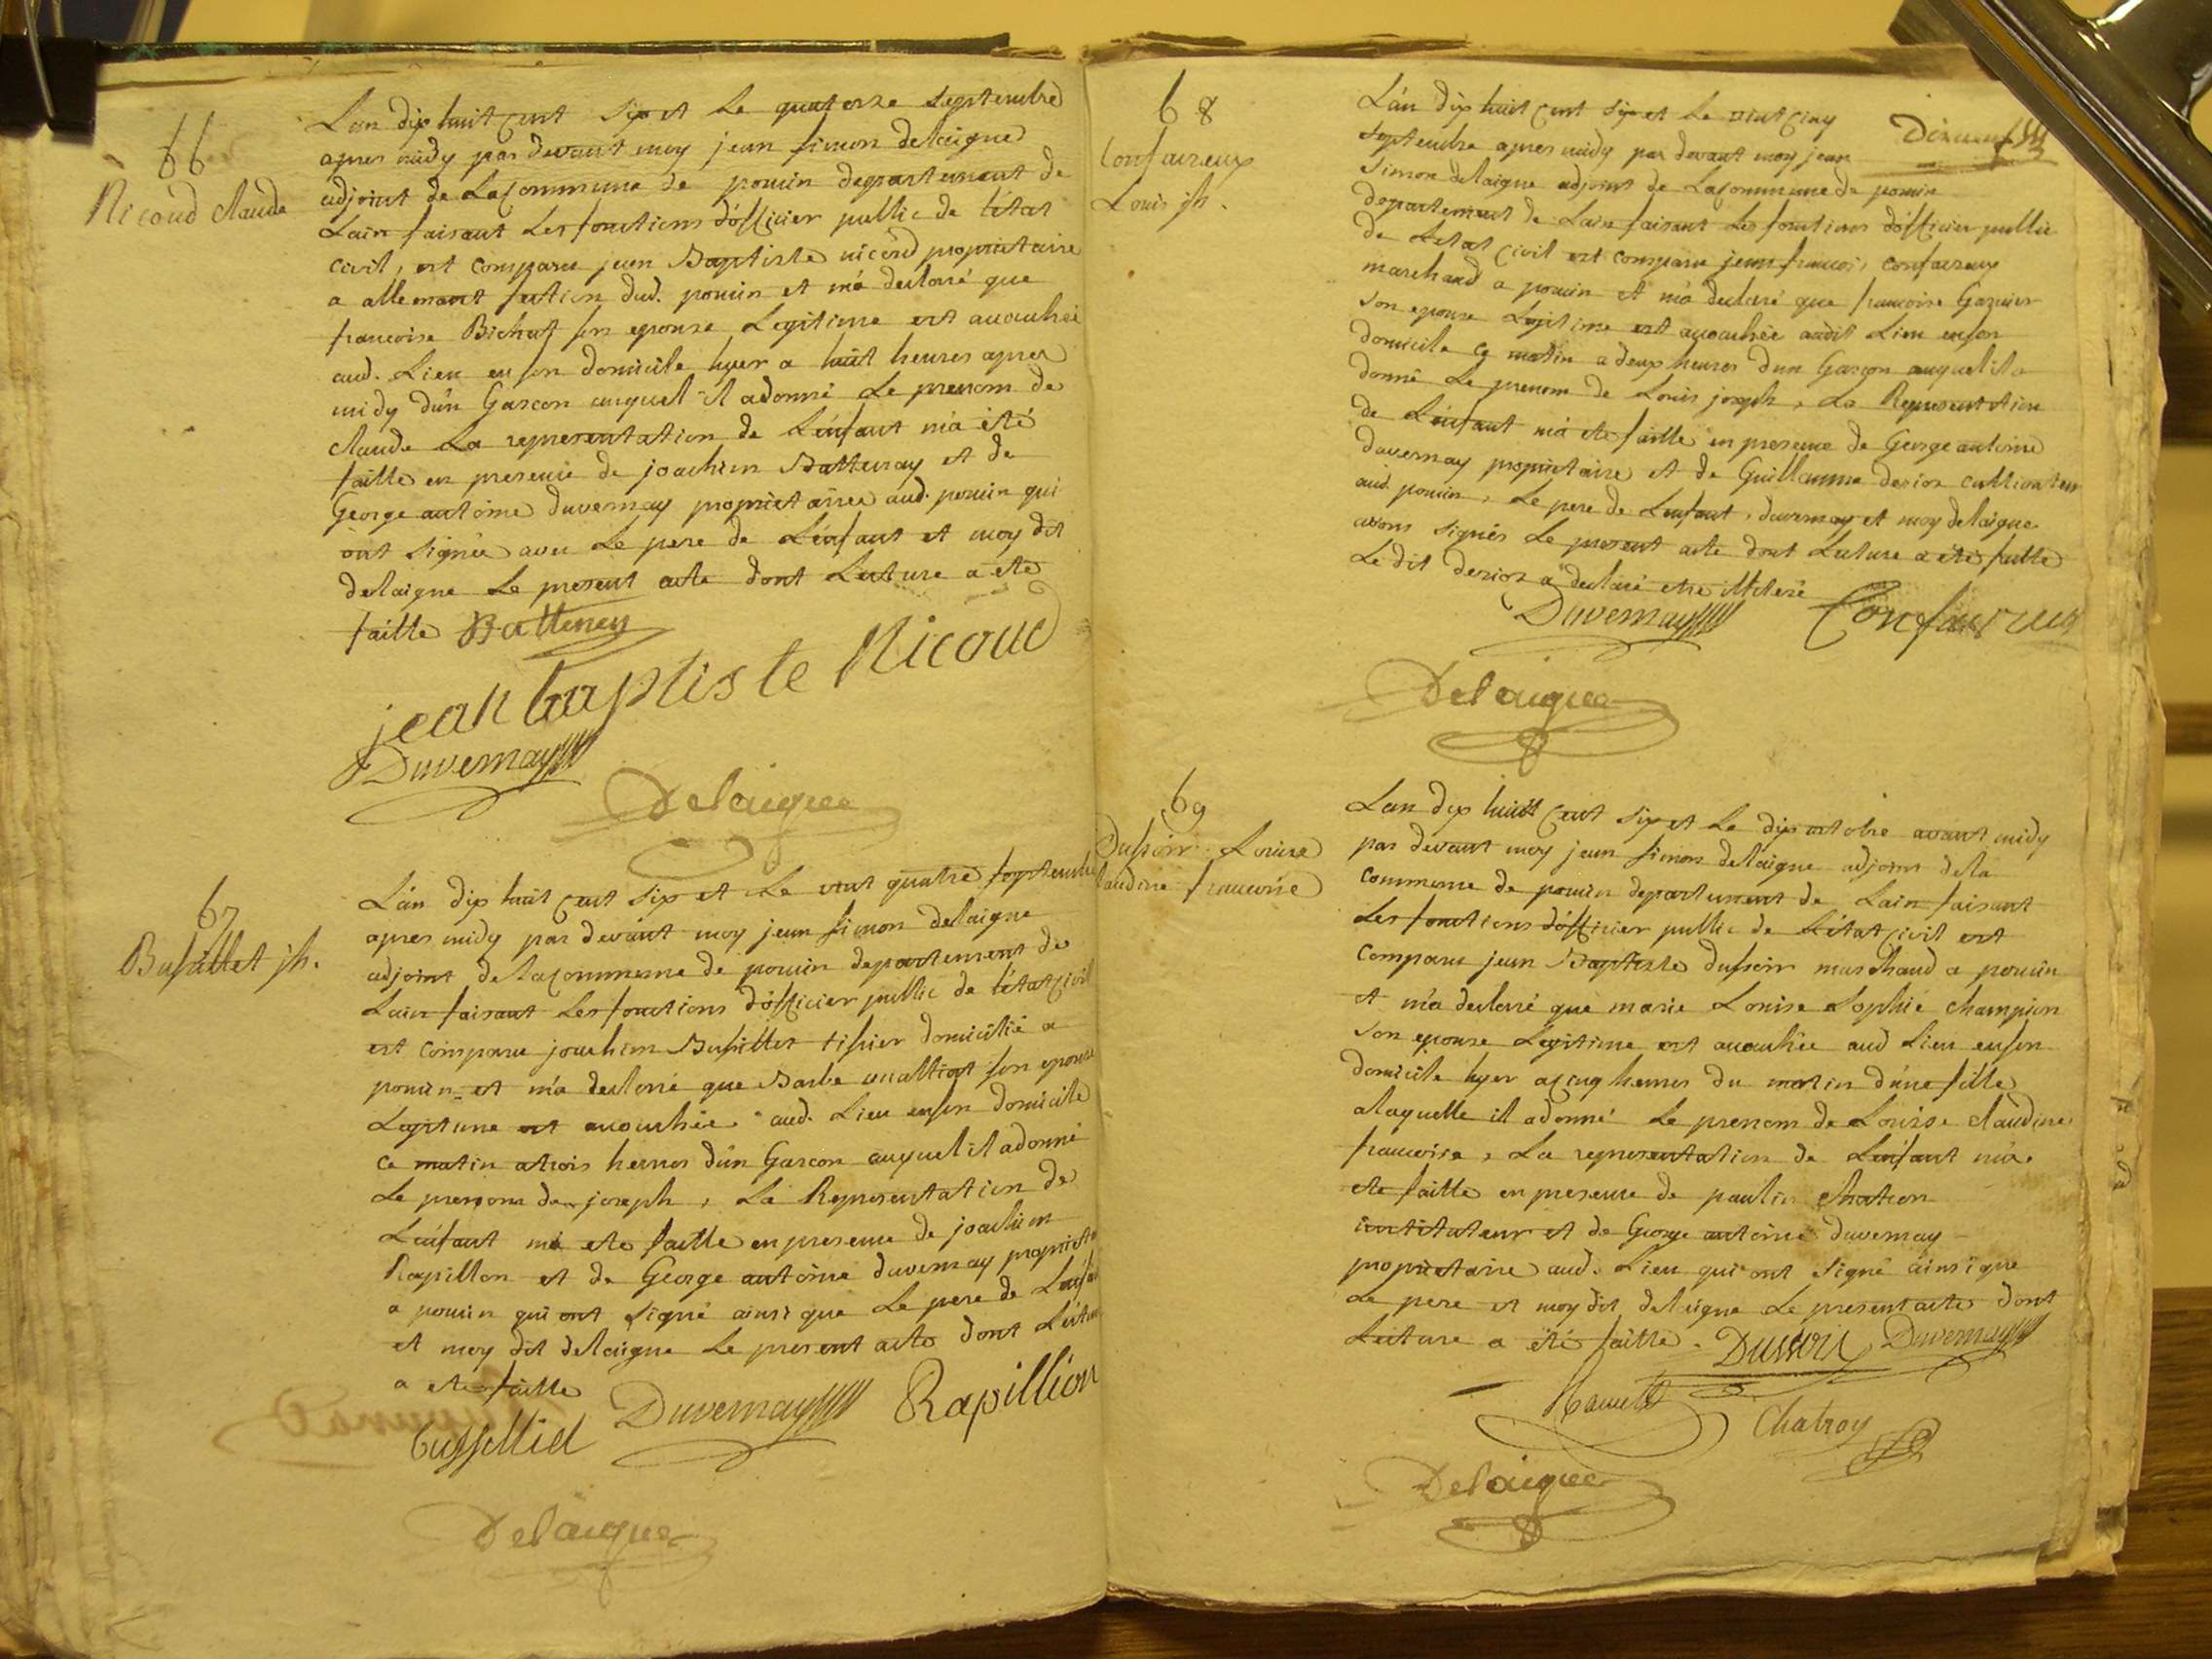 66
Nicoud Claude
L'an dix huit cent six et le quatorze septembre
apres midy par devant moy jean simon delaigue
adjoint de la commune de poncin departement de
Lain faisant les fonctions d'officier public de l'état
civil, est comparu jean Baptiste nicoud propriétaire
a allemant section dud. poncin et m'a declaré que
francoise Bichat son epouse Legitime est accouchée
aud. Lieu en son domicile hyer a huit heures apres
midy d'un Garcon auquel il a donné le prenom de
Claude La representation de L'enfant m'a été
faitte en presence de joachim Battenay et de
George antoine duvernay proprietaires aud. poncin qui
ont signés avec le pere de L'enfant et moy dit
delaigue le present acte dont Lecture a ete
faitte Batteney
jean baptiste Nicoud
Duvernay
Delaigue
67
Bussillet jh.
L'an dix huit cent six et le vint quatre septembre
apres midy par devant moy jean simon delaigue
adjoint de la commune de poncin departement de
Lain faisant les fonctions d'officier public de l'état civil
est comparu joachim Bussillet tissier domicilié a
poncin et m'a declaré que Barbe son epouse
Legitime est accouchée aud. Lieu en son domicile
ce matin a trois heures d'un Garcon auquel il a donné
Le prenom de joseph, La Representation de
L'enfant m'a ete faitte en presence de joachim
Rapillon et de George antoine duvernay
a poncin qui ont signé ainsi que le pere de
et moy dit delaigue le present acte dont
a ete faitte
Duvernay Rapillion
Delaigue
68
Confavreux
Louis jh.
L'an dix huit cent six et le vint cinq
septembre apres midy par devant moy jean
simon delaigue adjoint de la commune de poncin
departement de Lain faisant les fonctions d'officier public
de Letat civil est comparu jean francois confavreux
marchand a poncin et m'a declaré que francoise Garnier
son epouse Legitime est accouchée audit Lieu en son
domicile ce matin a deux heures d'un Garcon auquel il a
donné le prenom de Louis joseph, La Representation
de L'enfant m'a ete faitte en presence de George antoine
duvernay proprietaire et de Guillaume cultivateur
aud. poncin, Le pere de Lenfant, duvernay et moy delaigue
avons signés le present acte dont Lecture a été faitte
Le dit a declaré etre illiteré
Duvernay Confavreux
Delaigue
69
Dussoir Louise
Claudine francoise
L'an dix huit cent six et le dix octobre avant midy
par devant moy jean simon delaigue adjoint de la
commune de poncin departement de Lain faisant
Les fonctions d'officier public de L'état civil est
comparu jean Baptiste dussoir marchand a poncin
et m'a declaré que marie Louise Sophie champion
son epouse Legitime est accouchée aud Lieu en son
domicile hyer a cinq heures du matin d'une fille
a laquelle il a donné Le prenom de Louise claudine
francoise, La representation de L'enfant m'a
ete faitte en presence de paulin
instituteur et de George antoine duvernay
propriétaire aud. Lieu qui ont signé ainsi que
Le pere et moy dit delaigue le present acte dont
Lecture a été faitte. Dussoir Duvernay
Chatroy
Delaigue